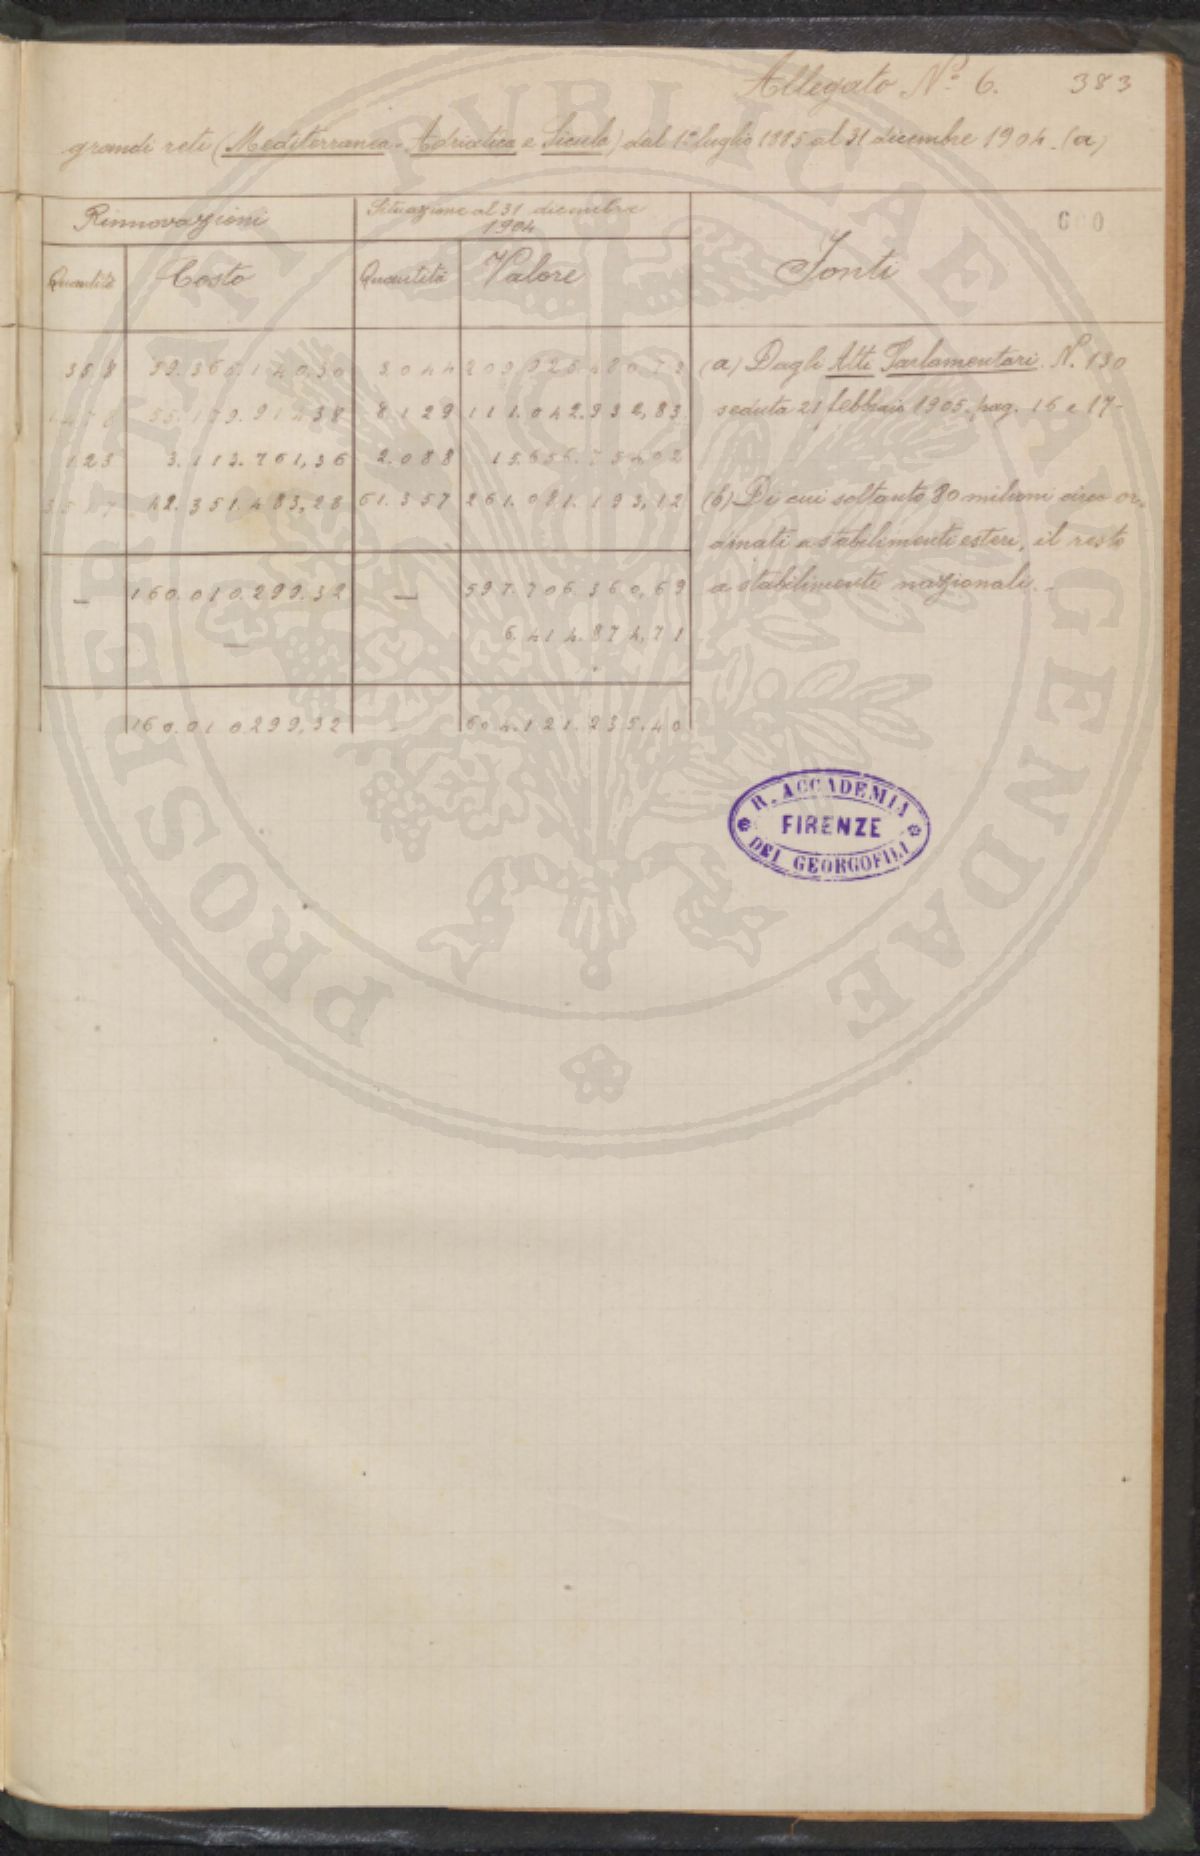 Allegato N.º 6. 383
grandi reti (Mediterranea - Adriatica e Sicula) dal 1º luglio 1885 al 31 dicembre 1904. (a)
600
Rinnovazioni Situazione al 31 dicembre 1904 Fonti
Quantità Costo Quantità Valore
388 59.365.140,30 3044 209.925.480,72
55.179.914,38 8129 111.042.932,83
123 3.113.761,36 2.088 15.656.754,02
42.351.483,28 61.357 261.081.193,12
— 160.010.299,32 — 597.706.360,69
— 6.414.874,71
160.010.299,32 604.121.235,40
(a) Dagli Atti Parlamentari. N. 130
seduta 21 febbraio 1905. pag. 16 e 17-
(b) Di cui soltanto 80 milioni circa or-
dinati a stabilimenti esteri, il resto
a stabilimenti nazionali. -
R. ACCADEMIA
FIRENZE
DEI GEORGOFILI
PROSPERITATI PVBLICAE AVGENDAE